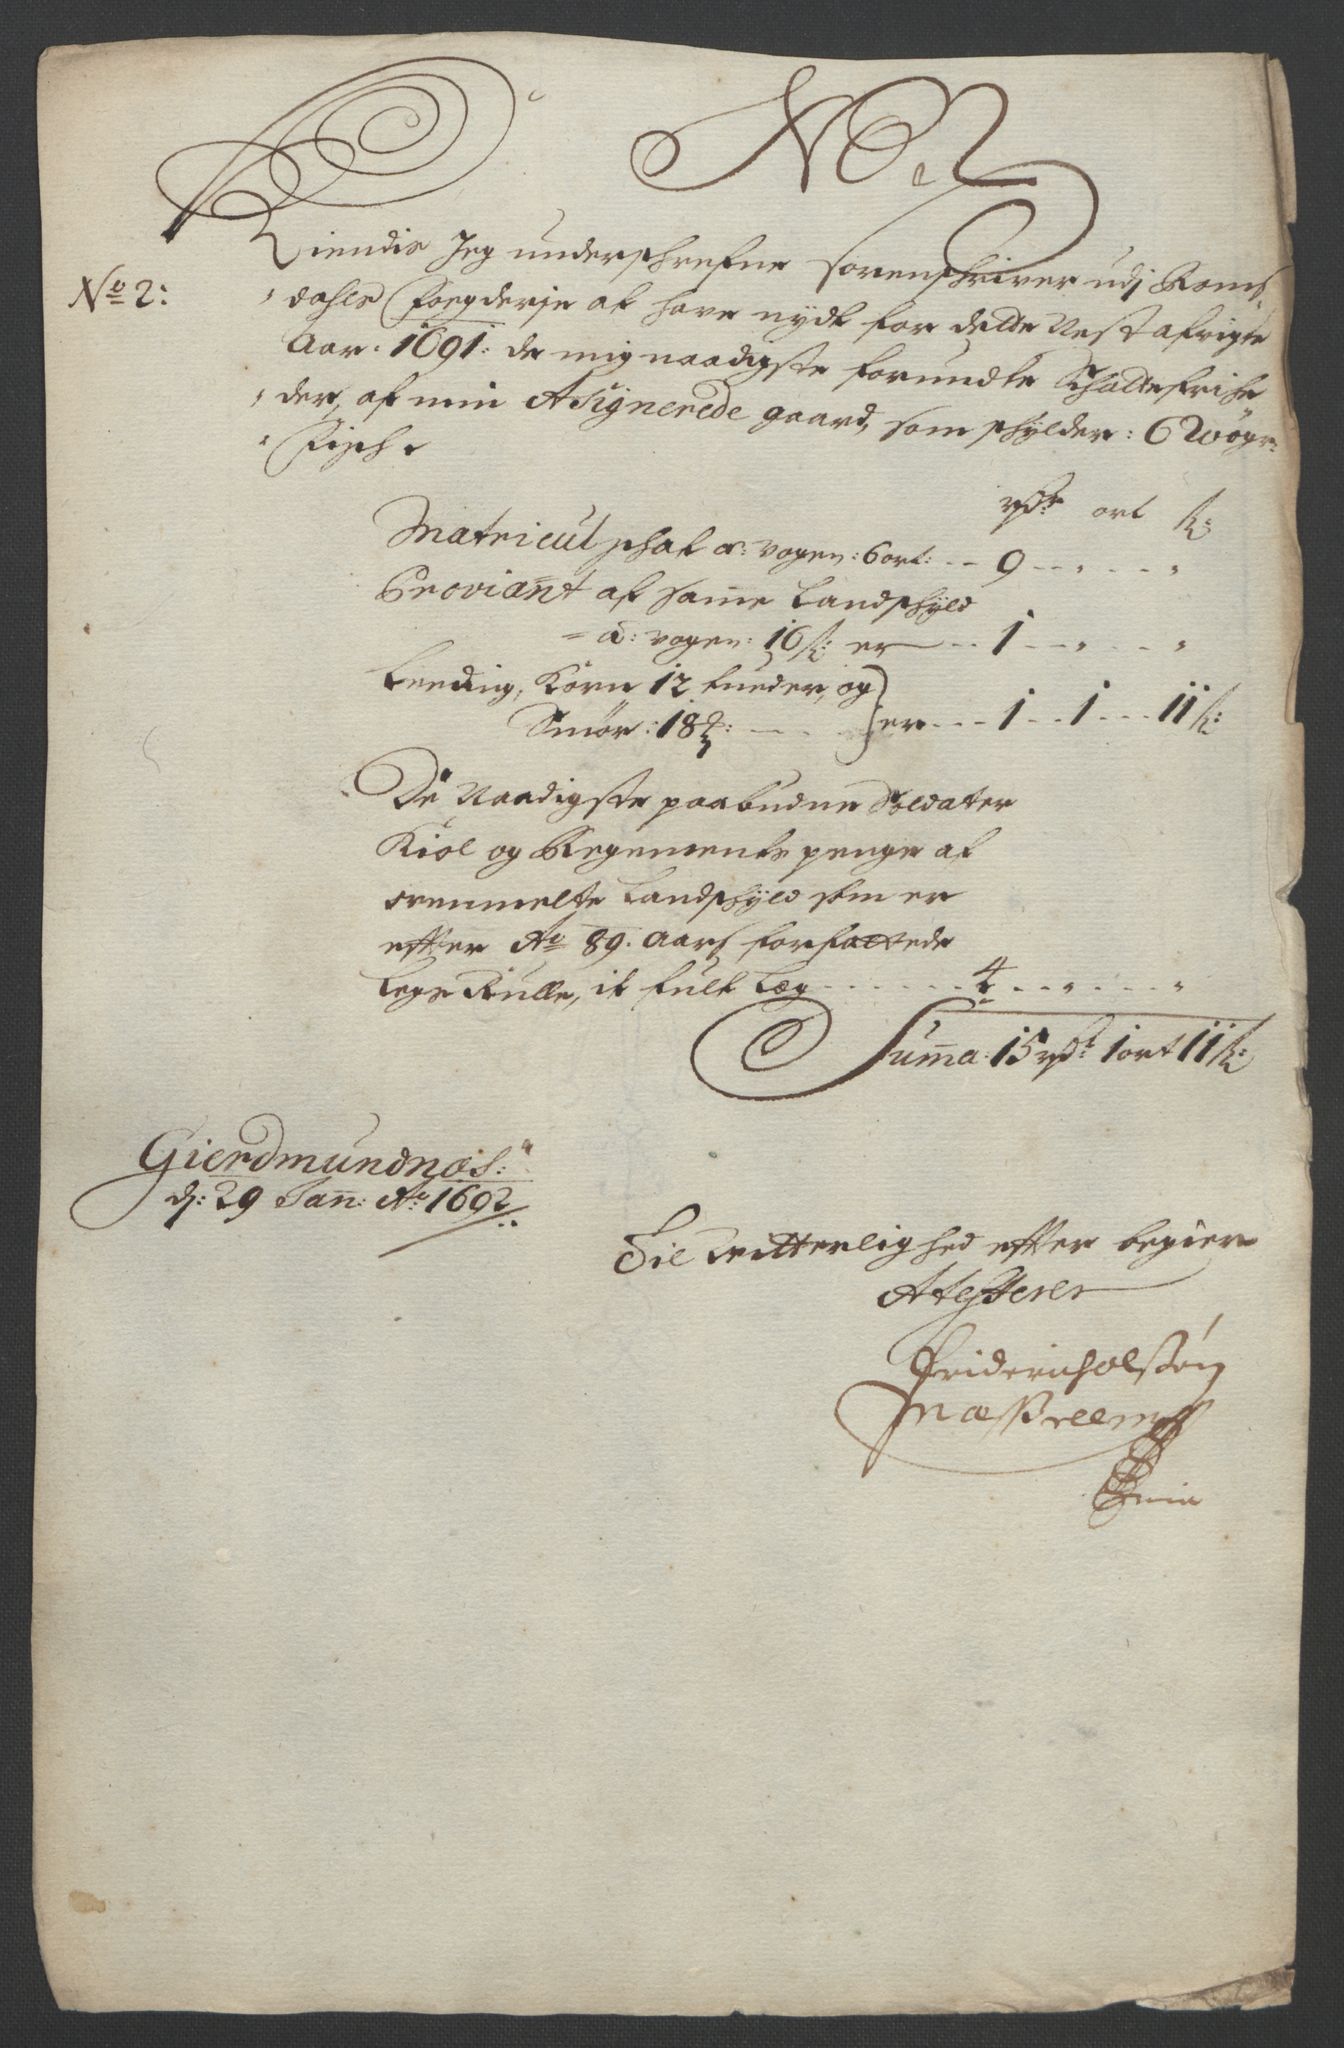 No 2
No 2:
Kiendis Jeg underschrefne sorenschriver udj Roms¬
dahls fogderje at have nydt for dette nest afvigte
Aar. 1691: de mig naadigste forundte Schattefrihe¬
der, af min Asignerede gaard, som schylder: 6 Woger
Fisch
rdr ort s:
Matricul schat a: vogen: 6 ort: -- 9 -- " -- "
Proviant af samme Landschyld
= a: vogen: 16 s: er -- 1 -- " -- "
Leeding, Korn 12 tneder, og
Smør: 18 : -- er -- 1 -- 1 -- 11 s:
De Naadigste paabudne Soldater
Kiol og Regements penge af
ovenmelte Landschyld som er
efter Ao 89. Aars forfattede
Legs Rulle, it fult Læg ------ 4 -- " -- "
Summa: 15 rdr 1 ort 11 s:
Gierdmundnæs:
d: 29 Jan: Ao 1692
Til Vitterlighed efter begier
Atesterer